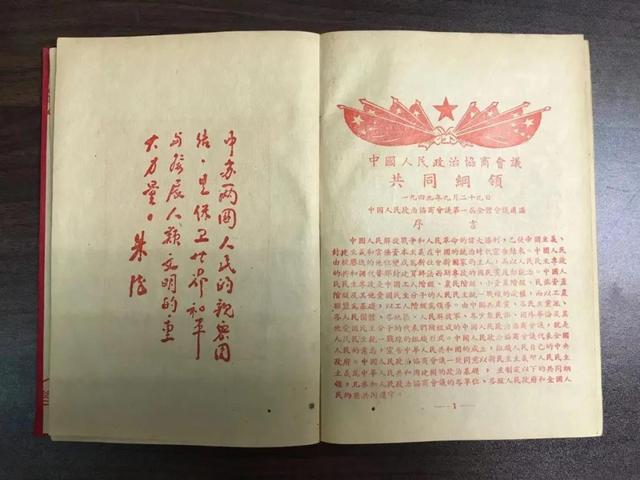 中苏两國人民的親密团
结，是保卫世界和平
与發展人類文明的重
大力量。朱德
中國人民政治協商會議
共同綱領
一九四九年九月二十九日
中國人民政治協商會議第一屆全體會議通過
序言
中國人民解放戰爭和人民革命的偉大勝利，已使帝國主義、
封建主義和官僚資本主義在中國的統治時代宣告結束。中國人民
由被壓迫的地位變成爲新社會新國家的主人，而以人民民主專政
的共和國代替那封建買辦法西斯專政的國民黨反動統治。中國人
民民主專政是中國工人階級、農民階級、小資產階級、民族資產
階級及其他愛國民主分子的人民民主統一戰線的政權，而以工農
聯盟爲基礎，以工人階級爲領導。由中國共產黨、各民主黨派、
各人民團體、各地區、人民解放軍、各少數民族、國外華僑及其
他愛國民主分子的代表們所組成的中國人民政治協商會議，就是
人民民主統一戰線的組織形式。中國人民政治協商會議代表全國
人民的意志，宣告中華人民共和國的成立，組織人民自己的中央
政府。中國人民政治協商會議一致同意以新民主主義即人民民主
主義爲中華人民共和國建國的政治基礎，並制定以下的共同綱
領，凡參加人民政治協商會議的各單位、各級人民政府和全國人
民均應共同遵守。
—1—